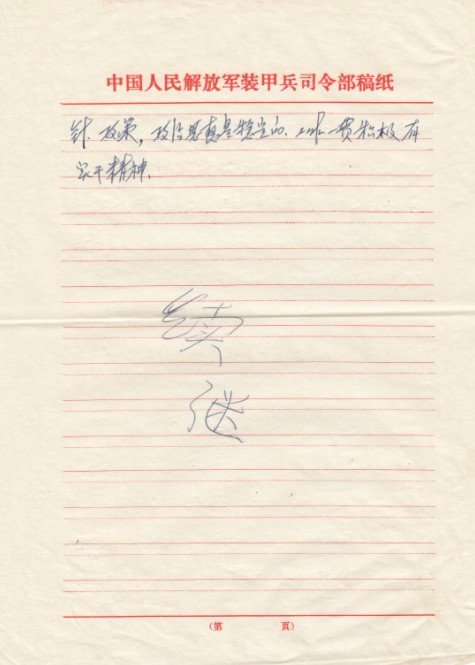 中国人民解放军装甲兵司令部稿纸
针、政策，政治思想是稳定的、工作一贯积极有
实干精神。
续
(第 页)